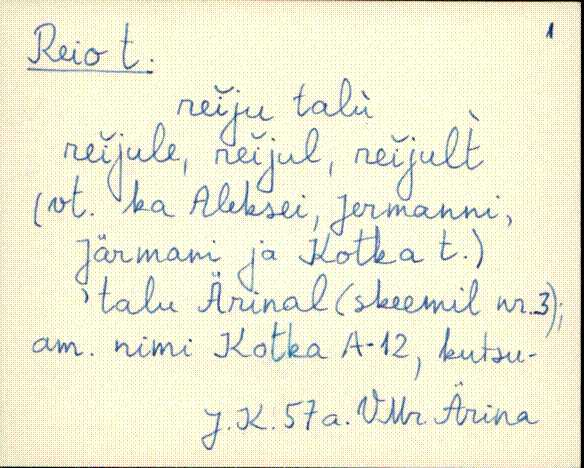 1
Reio t.
reĭju talù
reĭjule, reĭjul, reĭjult̀
(vt. ka Aleksei, Jermanni,
Järmani ja Kotka t.)
'talu Ärinal (skeemil nr.3);
am. nimi Kotka A-12, kutsu-
J.K. 57a. VMr Ärina